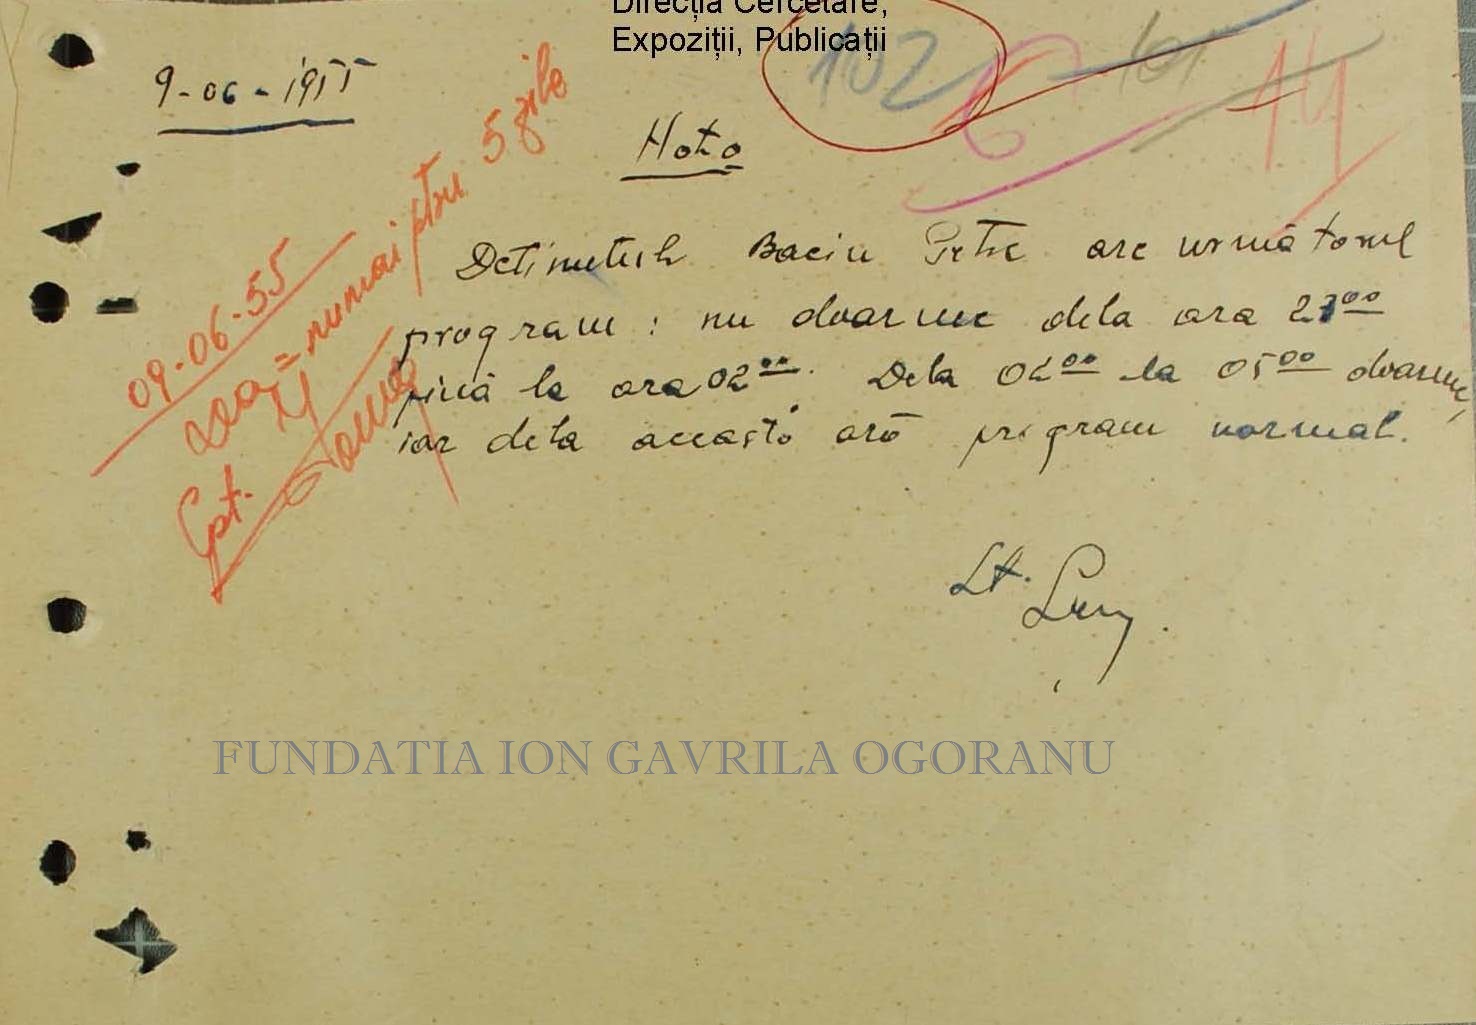 Direcția Cercetare,
Expoziții, Publicații
102
101
6
14
9-06-1955
Nota
Deținutul Baciu Petre are următorul
program: nu doarme dela ora
pînă la ora 02⁰⁰. Dela 02⁰⁰ la 05⁰⁰ doarme,
iar dela această oră program normal.
Lt.
09-06-55
numai ptru 5 zile
Cpt.
FUNDATIA ION GAVRILA OGORANU